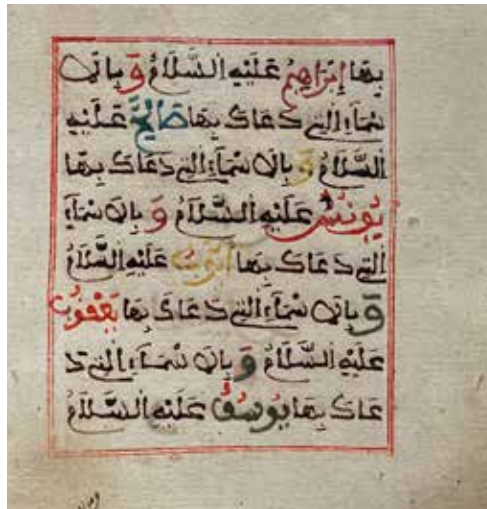 بِهَا إِبْرَاهِيمُ عَلَيْهِ السَّلَامُ وَبِالْأَ
سْمَآءِ الَّتِي دَعَاكَ بِهَا صَالِحٌ عَلَيْهِ
السَّلَامُ وَبِالْأَسْمَآءِ الَّتِي دَعَاكَ بِهَا
يُونُسُ عَلَيْهِ السَّلَامُ وَبِالْأَسْمَآءِ
الَّتِي دَعَاكَ بِهَا أَيُّوبُ عَلَيْهِ السَّلَامُ
وَبِالْأَسْمَآءِ الَّتِي دَعَاكَ بِهَا يَعْقُوبُ
عَلَيْهِ السَّلَامُ وَبِالْأَسْمَآءِ الَّتِي دَ
عَاكَ بِهَا يُوسُفُ عَلَيْهِ السَّلَامُ